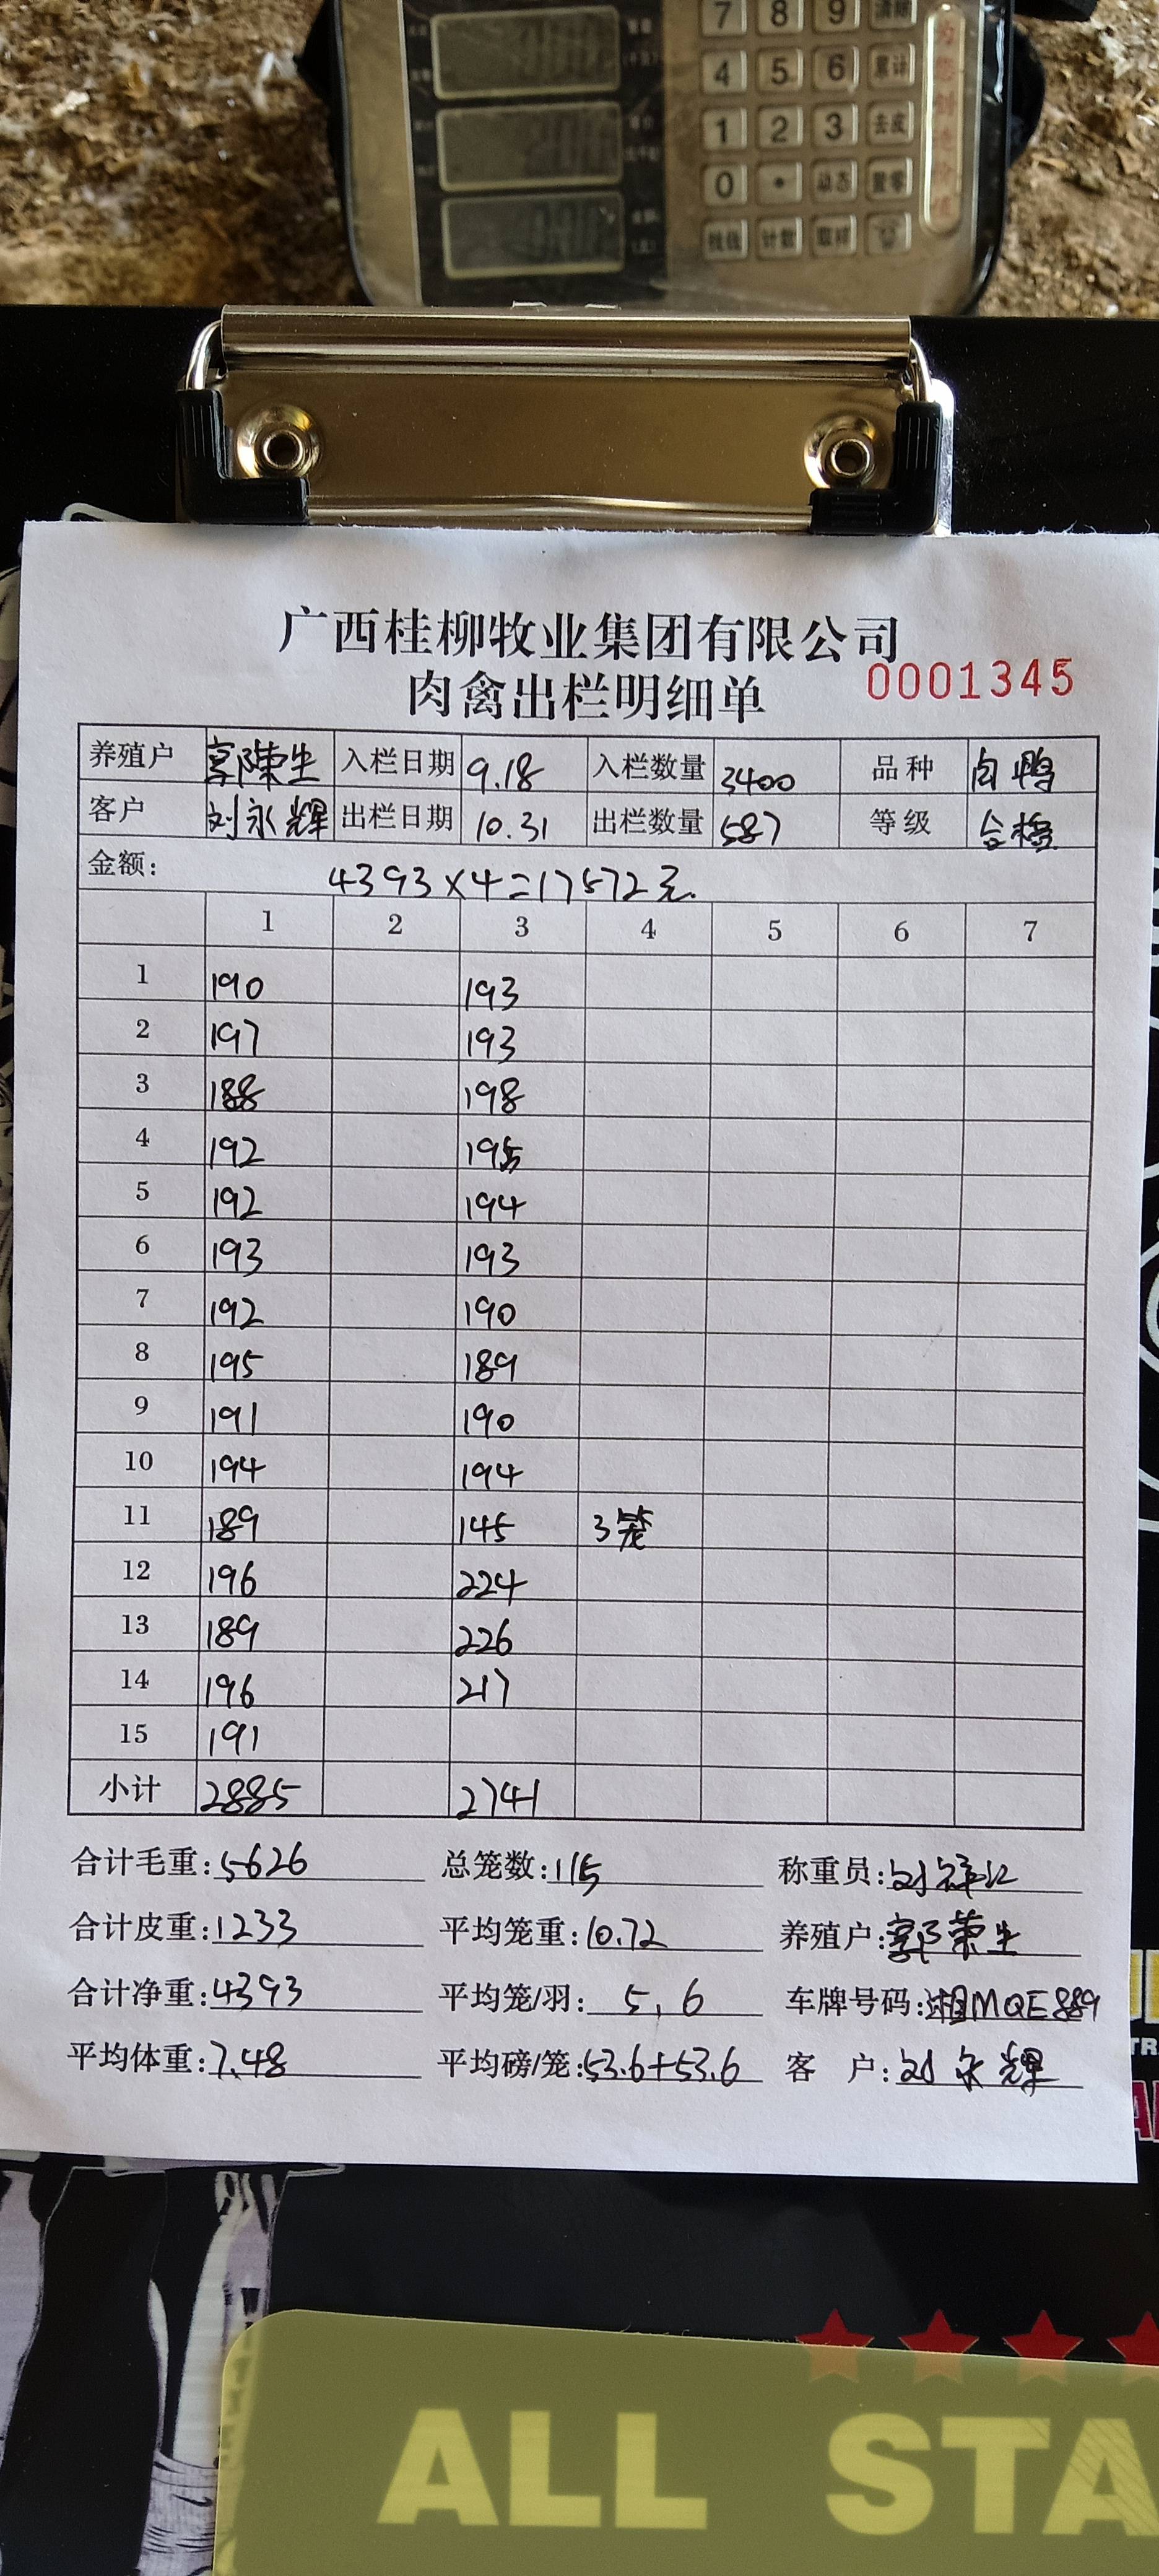 7 8 9 清除
4 5 6 累计
1 2 3 去皮
0 • 动态 置零
找钱 计数 取样
广西桂柳牧业集团有限公司
肉禽出栏明细单 0001345
养殖户 郭荣生 入栏日期 9.18 入栏数量 3400 品种 肉鸭
客户 刘永辉 出栏日期 10.31 出栏数量 587 等级 合格
金额: 4393×4=17572元.
1 2 3 4 5 6 7
1 190 193
2 197 193
3 188 198
4 192 195
5 192 194
6 193 193
7 192 190
8 195 189
9 191 190
10 194 194
11 189 145 3笼
12 196 224
13 189 226
14 196 217
15 191
小计 2885 2741
合计毛重:5626 总笼数:115 称重员:刘祥江
合计皮重:1233 平均笼重:10.72 养殖户:郭荣生
合计净重:4393 平均笼/羽: 5,6 车牌号码:湘MQE889
平均体重:7.48 平均磅/笼:53.6+53.6 客 户:刘永辉
ALL STA